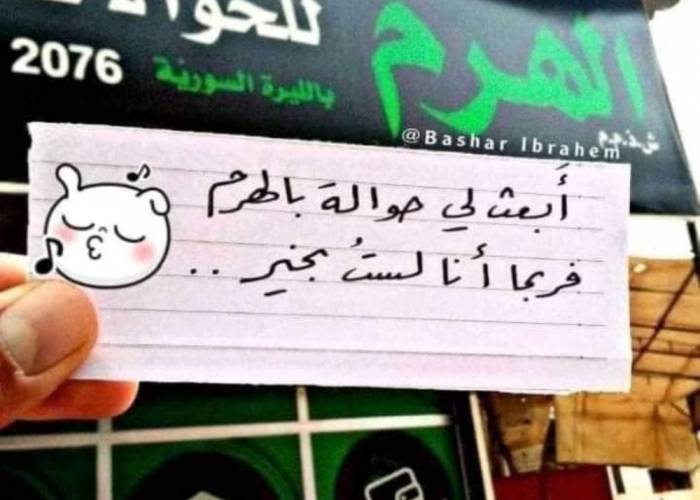 للحوالات
الهرم
2076 بالليرة السورية
ش.ذ.م.م
@Bashar Ibrahem
أَبعث لي حوالة بالهرم
فربما أنا لستُ بخير ..